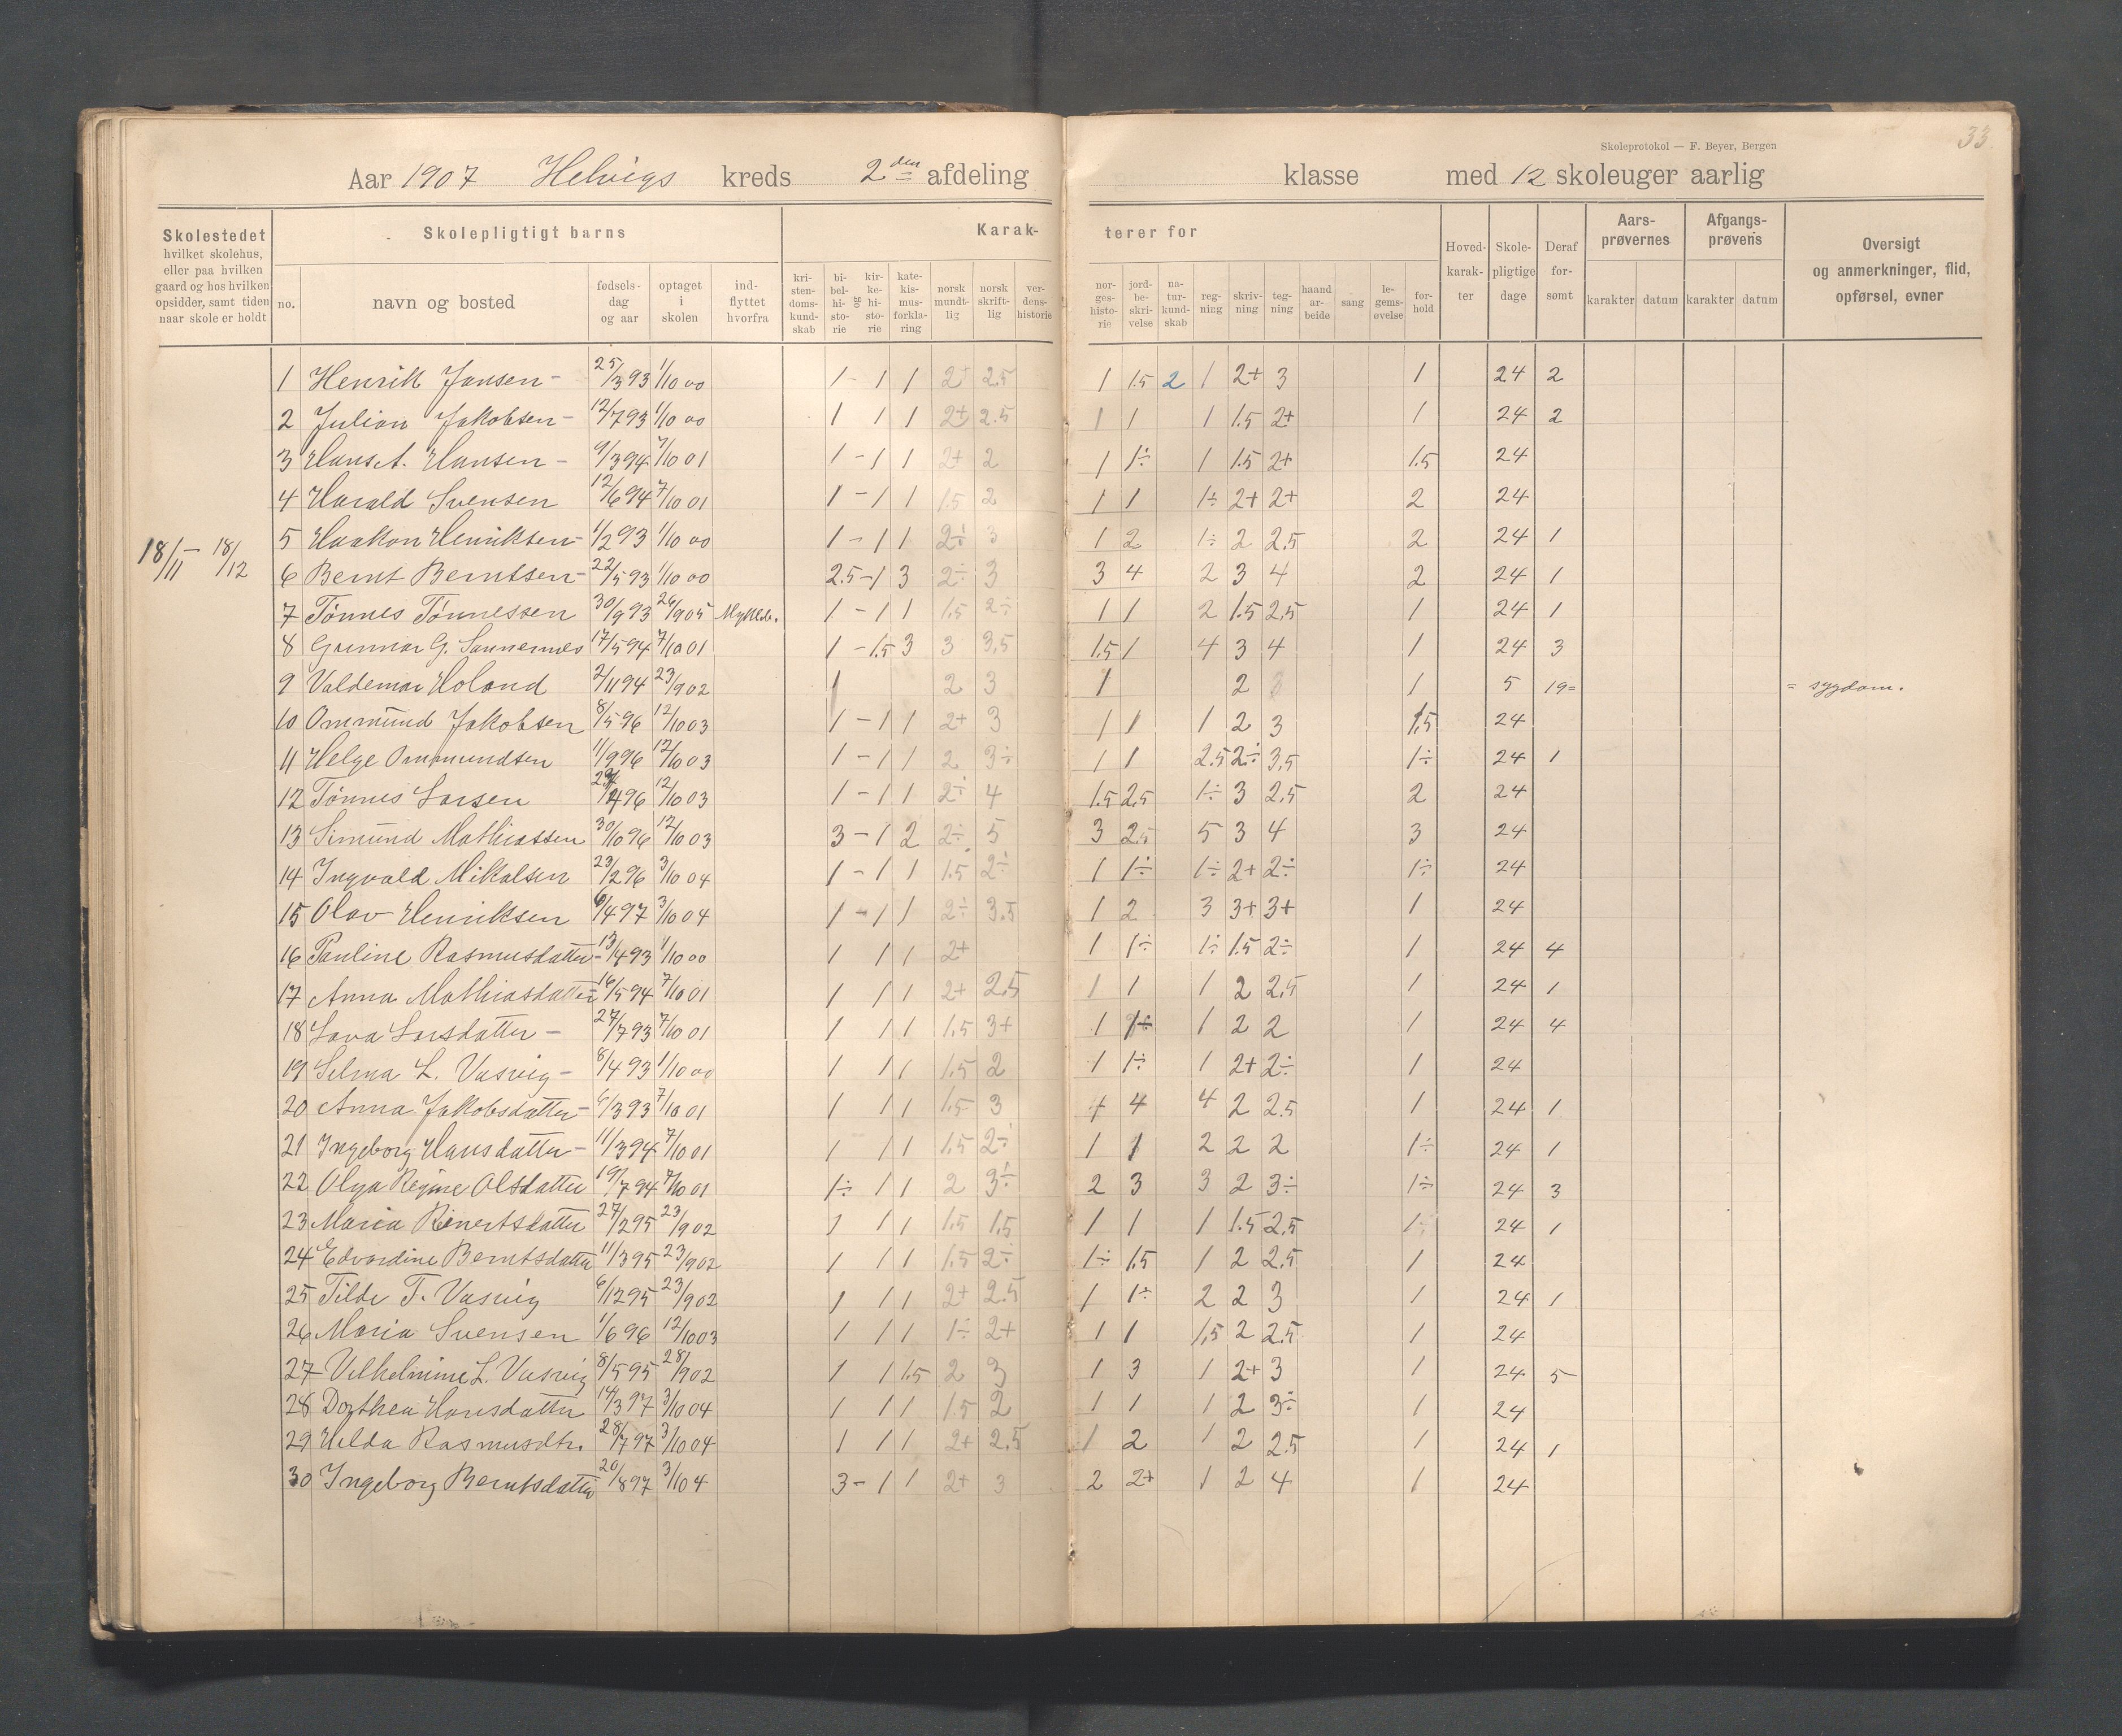 33
Skoleprotokol — F. Beyer, Bergen
Aar 1907 Helvigs kreds 2den afdeling klasse med 12 skoleuger aarlig
Skolestedet hvilket skolehus, eller paa hvilken gaard og hos hvilken opsidder, samt tiden naar skole er holdt
Skolepligtigt barns
no. navn og bosted fødsels-dag og aar optaget i skolen ind-flyttet hvorfra
Karak-terer for
kri-sten-doms-kund-skab bi-bel-hi-sto-rie og kir-ke-hi-sto-rie kate-kis-mus-forkla-ring norsk mundt-lig norsk skrift-lig ver-dens-historie nor-ges-histo-rie jord-be-skri-velse na-tur-kund-skab reg-ning skriv-ning teg-ning haand ar-beide sang le-gems-øvelse for-hold
Hoved-karak-ter Skole-pligtige dage Deraf for-sømt
Aars-prøvernes karakter datum
Afgangs-prøvens karakter datum
Oversigt og anmerkninger, flid, opførsel, evner
18/11 – 18/12
1 Henrik Jansen – 25/3 93 1/10 00 1 – 1 1 2+ 2.5 1 1.5 2 1 2+ 3 1 24 2
2 Julian Jakobsen – 12/7 93 1/10 00 1 1 1 2+ 2.5 1 1 1 1.5 2+ 1 24 2
3 Hans A. Hansen – 9/3 94 7/10 01 1 – 1 1 2+ 2 1 1÷ 1 1.5 2+ 1.5 24
4 Harald Svensen 12/6 94 7/10 01 1 – 1 1 1.5 2 1 1 1÷ 2+ 2+ 2 24
5 Haakon Henriksen – 1/2 93 1/10 00 1 – 1 1 2÷ 3 1 2 1÷ 2 2.5 2 24 1
6 Bernt Berntsen – 22/5 93 1/10 00 2.5 – 1 3 2÷ 3 3 4 2 3 4 2 24 1
7 Tönnes Tönnessen 30/9 93 26/9 05 1 – 1 1 1.5 2÷ 1 1 2 1.5 2.5 1 24 1
8 Gunnar G. Sannernes 17/5 94 7/10 01 1 – 1.5 3 3 3.5 1.5 1 4 3 4 1 24 3
9 Valdemar Holand 2/11 94 23/9 02 1 2 3 1 2 1 5 19= = sygdom.
10 Ommund Jakobsen 8/5 96 12/10 03 1 – 1 1 2+ 3 1 1 1 2 3 1.5 24
11 Helge Ommundsen 11/9 96 12/10 03 1 – 1 1 2 3÷ 1 1 2.5 2÷ 3.5 1÷ 24 1
12 Tönnes Larsen 96 12/10 03 1 – 1 1 2÷ 4 1.5 2.5 1÷ 3 2.5 2 24
13 Simund Mathiassen 30/10 96 12/10 03 3 – 1 2 2÷ 5 3 2.5 5 3 4 3 24
14 Ingvald Mikalsen 23/2 96 3/10 04 1 – 1 1 1.5 2÷ 1 1÷ 1÷ 2+ 2÷ 1÷ 24
15 Olav Henriksen 6/4 97 3/10 04 1 – 1 1 2÷ 3.5 1 2 3 3+ 3+ 1 24
16 Pauline Rasmusdatter – 13/4 93 1/10 00 1 1 1 2+ 1 1÷ 1÷ 1.5 2÷ 1 24 4
17 Anna Mathiasdatter – 16/5 94 7/10 01 1 1 1 2+ 2.5 1 1 1 2 2.5 1 24 1
18 Lava Larsdatter – 27/7 93 7/10 01 1 1 1 1.5 3+ 1 1÷ 1 2 2 1 24 4
19 Selma L. Vasvig – 8/4 93 1/10 00 1 1 1 1.5 2 1 1÷ 1 2+ 2÷ 1 24
20 Anna Jakobsdatter – 6/3 93 7/10 01 1 1 1 1.5 3 4 4 4 2 2.5 1 24 1
21 Ingeborg Hansdatter – 11/3 94 7/10 01 1 1 1 1.5 2÷ 1 1 2 2 2 1÷ 24 1
22 Olga Regine Olsdatter 19/7 94 7/10 01 1÷ 1 1 2 3÷ 2 3 3 2 3÷ 1÷ 24 3
23 Maria Rinertsdatter 27/2 95 23/9 02 1 1 1 1.5 1.5 1 1 1 1.5 2.5 1 24 1
24 Edvardine Berntsdatter 11/3 95 23/9 02 1 1 1 1.5 2÷ 1÷ 1.5 1 2 2.5 1 24
25 Tilde T. Vasvig 6/12 95 23/9 02 1 1 1 2+ 2.5 1 1÷ 2 2 3 1 24 1
26 Maria Svensen 1/6 96 12/10 03 1 1 1 1÷ 2+ 1 1 1.5 2 2.5 1 24
27 Vilhelmine L. Vasvig 8/5 95 28/9 02 1 1 1.5 2 3 1 3 1 2+ 3 1 24 5
28 Dorthea Hansdatter 14/3 97 3/10 04 1 1 1 1.5 2 1 1 1 2 3÷ 1 24
29 Hilda Rasmusdtr. 28/7 97 3/10 04 1 1 1 2+ 2.5 1 2 1 2 2.5 1 24 1
30 Ingeborg Berntsdatter 20/8 97 3/10 4 3 – 1 1 2+ 3 2 2+ 1 2 4 1 24